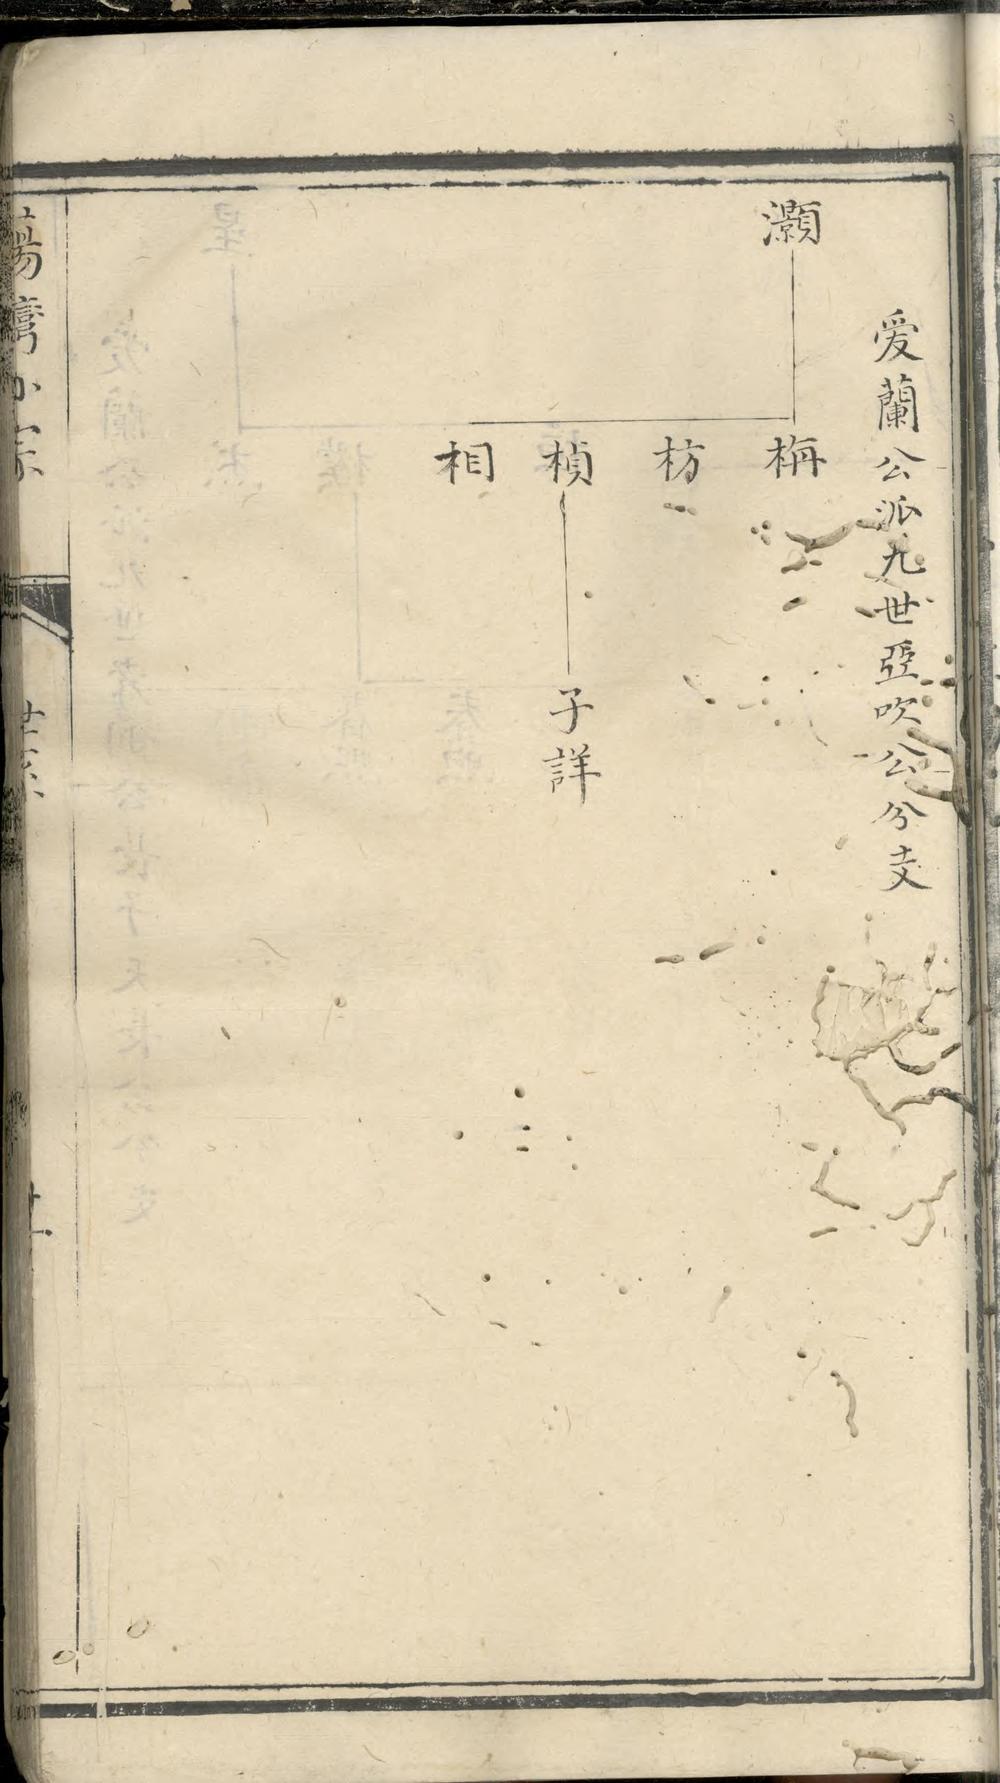 爰蘭公派九世亞吹公分支
灝
栴
枋
楨
相
子詳
世系